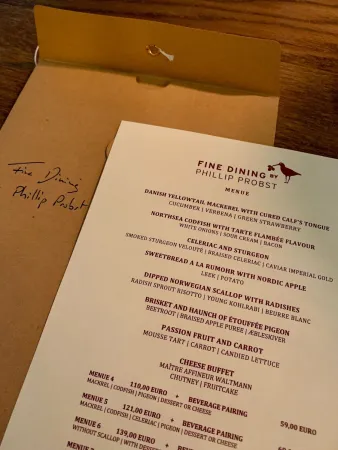 Fine Dining
Phillip Probst
FINE DINING BY
PHILLIP PROBST
MENUE
DANISH YELLOWTAIL MACKEREL WITH CURED CALF'S TONGUE
CUCUMBER | VERBENA | GREEN STRAWBERRY
NORTHSEA CODFISH WITH TARTE FLAMBÉE FLAVOUR
WHITE ONIONS | SOUR CREAM | BACON
CELERIAC AND STURGEON
SMOKED STURGEON VELOUTÉ | BRAISED CELERIAC | CAVIAR IMPERIAL GOLD
SWEETBREAD A LA RUMOHR WITH NORDIC APPLE
LEEK | POTATO
DIPPED NORWEGIAN SCALLOP WITH RADISHES
RADISH SPROUT RISOTTO | YOUNG KOHLRABI | BEURRE BLANC
BRISKET AND HAUNCH OF ÉTOUFFÉE PIGEON
BEETROOT | BRAISED APPLE PUREE | ÆBLESKIVER
PASSION FRUIT AND CARROT
MOUSSE TART | CARROT | CANDIED LETTUCE
CHEESE BUFFET
MAÎTRE AFFINEUR WALTMANN
CHUTNEY | FRUITCAKE
MENUE 4 110,00 EURO + BEVERAGE PAIRING 59,00 EURO
MACKREL | CODFISH | PIGEON | DESSERT OR CHEESE
MENUE 5 121,00 EURO + BEVERAGE PAIRING
MACKREL | CODFISH | CELERIAC | PIGEON | DESSERT OR CHEESE
MENUE 6 139,00 EURO + BEVERAGE PAIRING